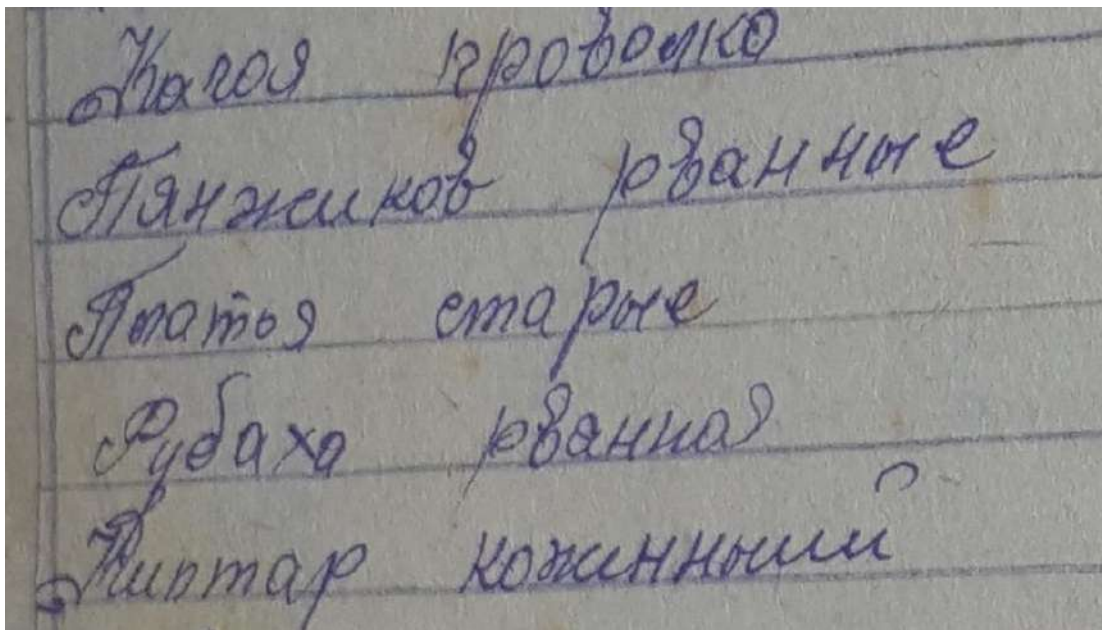 Кагоя проволко
Пянжиков рванные
Платья старые
Рубаха рванная
Киптар кожинныий